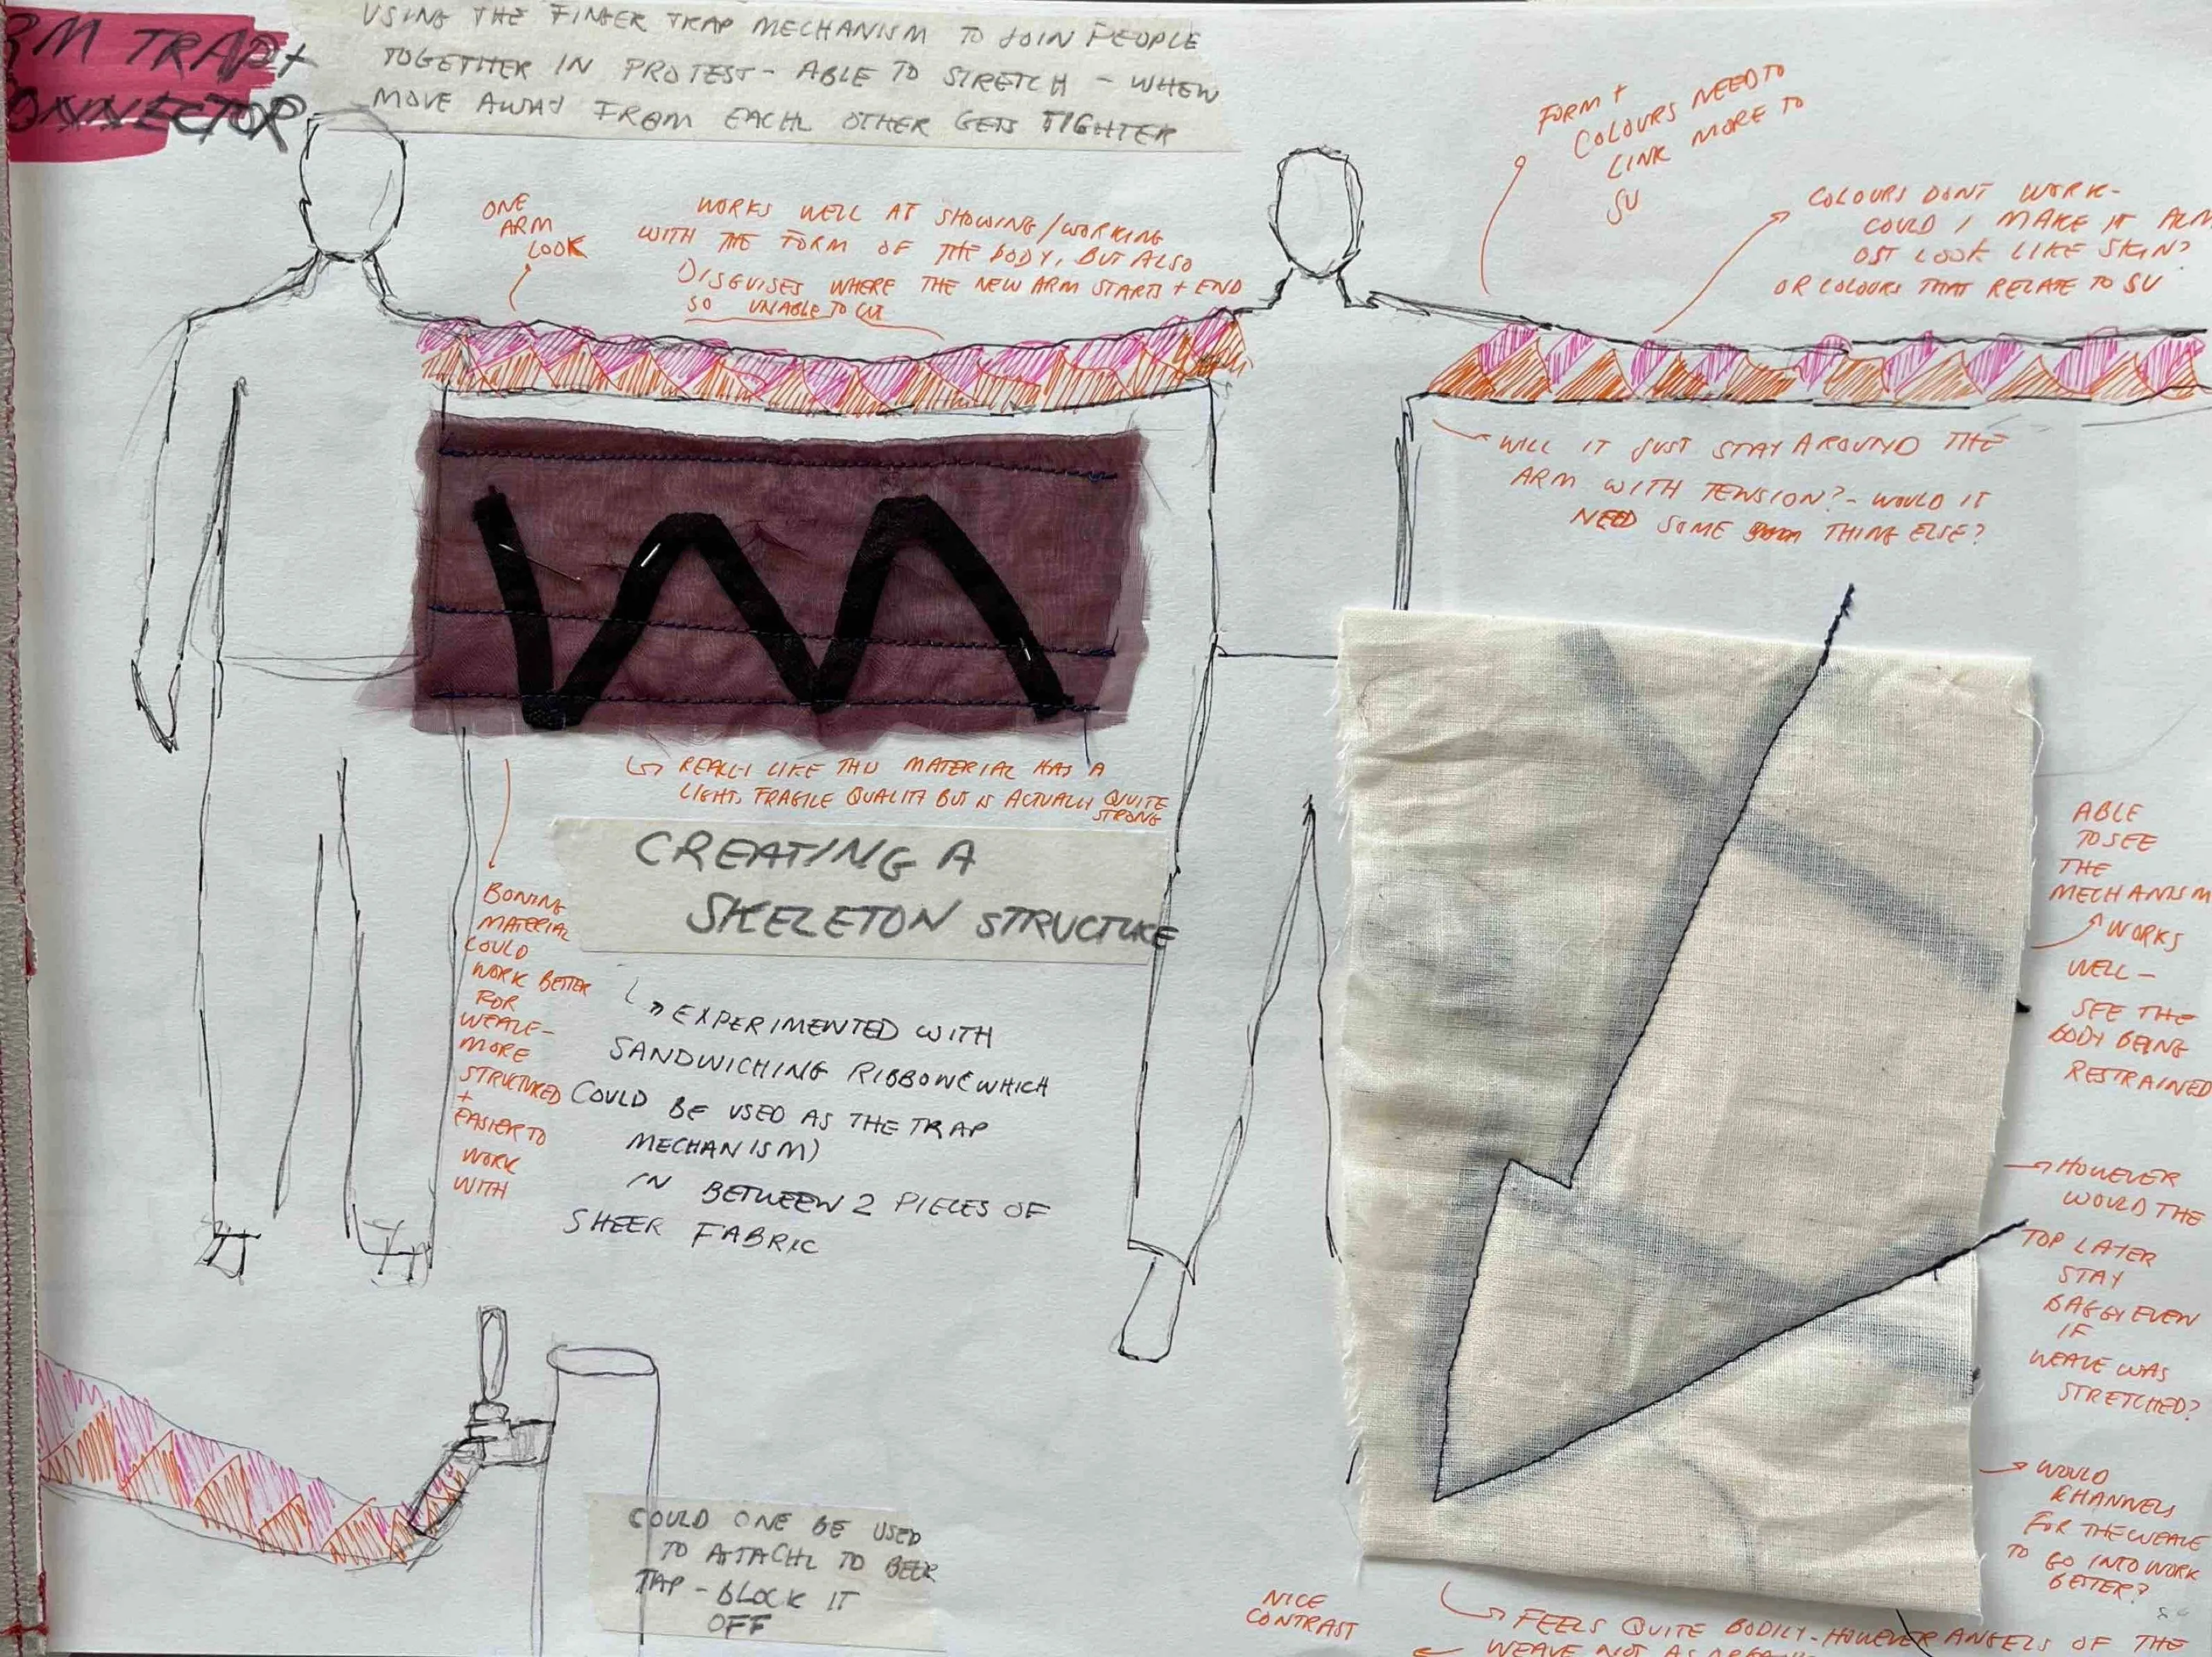 RM TRAP +
ONNECTOR
USING THE FINGER TRAP MECHANISM TO JOIN PEOPLE
TOGETHER IN PROTEST - ABLE TO STRETCH - WHEN
MOVE AWAY FROM EACH OTHER GETS TIGHTER
ONE
ARM
LOOK
WORKS WELL AT SHOWING/WORKING
WITH THE FORM OF THE BODY, BUT ALSO
DISGUISES WHERE THE NEW ARM STARTS + END
SO UNABLE TO CUT
FORM +
COLOURS NEED TO
LINK MORE TO
SU
COLOURS DONT WORK-
COULD I MAKE IT ALM
OST LOOK LIKE SKIN?
OR COLOURS THAT RELATE TO SU
WILL IT JUST STAY AROUND THE
ARM WITH TENSION? - WOULD IT
NEED SOME THING ELSE?
REALLY LIKE THIS MATERIAL HAS A
LIGHT, FRAGILE QUALITY BUT IS ACTUALLY QUITE
STRONG
CREATING A
SKELETON STRUCTURE
BONING
MATERIAL
COULD
WORK BETTER
FOR
WEAVE-
MORE
STRUCTURED
+
EASIER TO
WORK
WITH
EXPERIMENTED WITH
SANDWICHING RIBBON (WHICH
COULD BE USED AS THE TRAP
MECHANISM)
IN BETWEEN 2 PIECES OF
SHEER FABRIC
ABLE
TO SEE
THE
MECHANISM
WORKS
WELL -
SEE THE
BODY BEING
RESTRAINED
HOWEVER
WOULD THE
TOP LAYER
STAY
BAGGY EVEN
IF
WEAVE WAS
STRETCHED?
WOULD
KHANNELS
FOR THE WEAVE
TO GO INTO WORK
BETTER?
COULD ONE BE USED
TO ATTACH TO BEER
TAP - BLOCK IT
OFF
NICE
CONTRAST
FEELS QUITE BODILY - HOWEVER ANGELS OF THE
WEAVE NOT AS